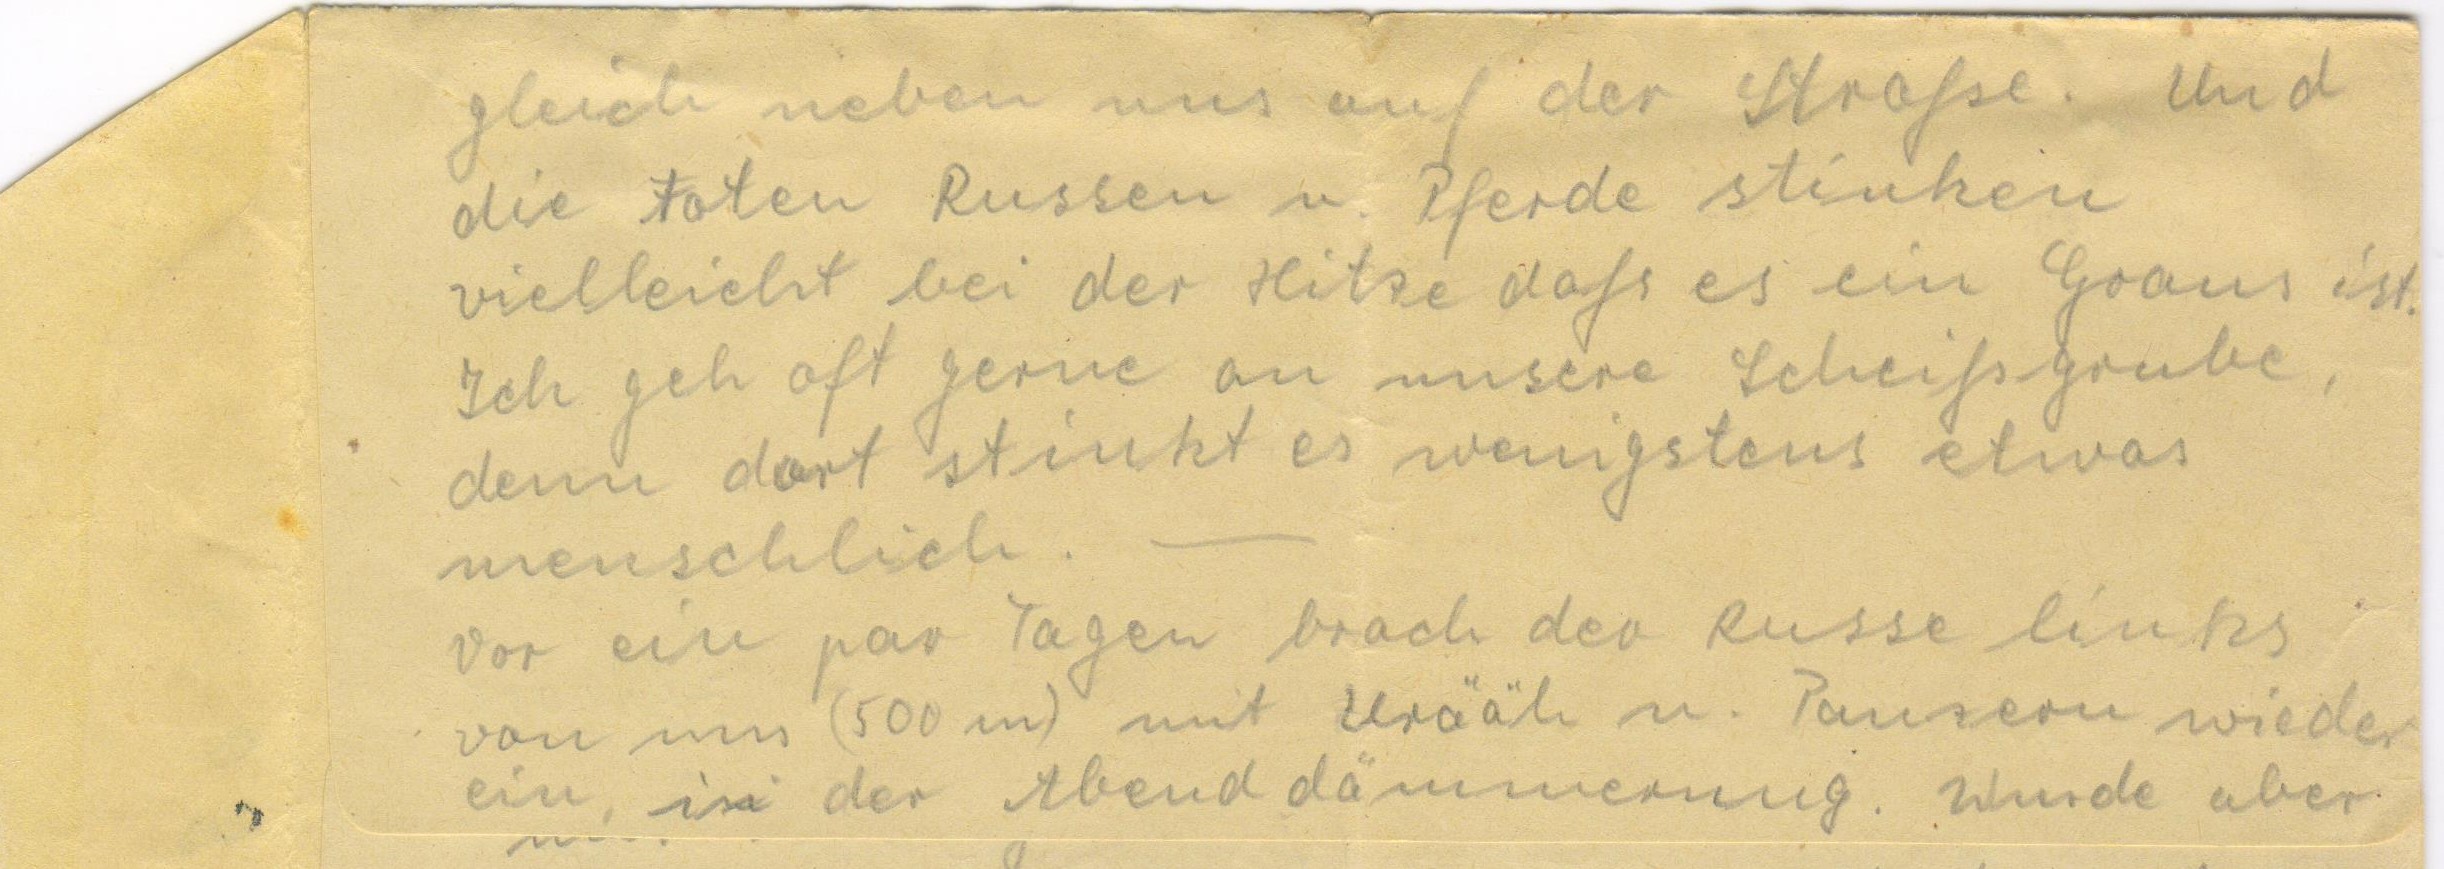 gleich neben uns auf der Straße. Und
die toten Russen u. Pferde stinken
vielleicht bei der Hitze daß es ein Graus ist.
Ich geh oft gerne an unsere Scheißgrube,
denn dort stinkt es wenigstens etwas
menschlich. —
Vor ein par Tagen brach der Russe links
von uns (500 m) mit Urääh u. Panzern wieder
ein, in der Abenddämmerung. Wurde aber